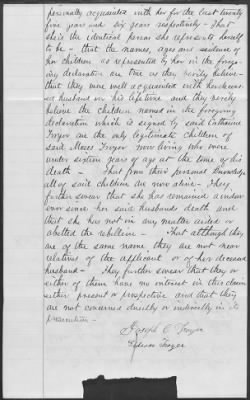 personally acquainted with her for the last twenty
five years and six years respectively - That
she is the identical person she represents herself
to be - that the names, ages and residence of
her children as represented by her in the forego-
ing declaration are true as they verily believe -
that they were well acquainted with her deceas-
ed husband in his life time and they verily
believe the children named in the foregoing
declaration which is signed by said Catharine
Troyer are the only legitimate children of
said Moses Troyer now living who were
under sixteen years of age at the time of his
death - That from their personal knowledge
all of said children are now alive - They
further swear that she has remained a widow
ever since her said husbands death and
that she has not in any matter aided or
abetted the rebellion - That although they
are of the same name, they are not near
relatives of the applicant or of her deceased
husband - They further swear that they or
either of them have no interest in this claim
either present or prospective and that they
are not concerned directly or indirectly in its
prosecution -
Joseph C. Troyer
Troyer